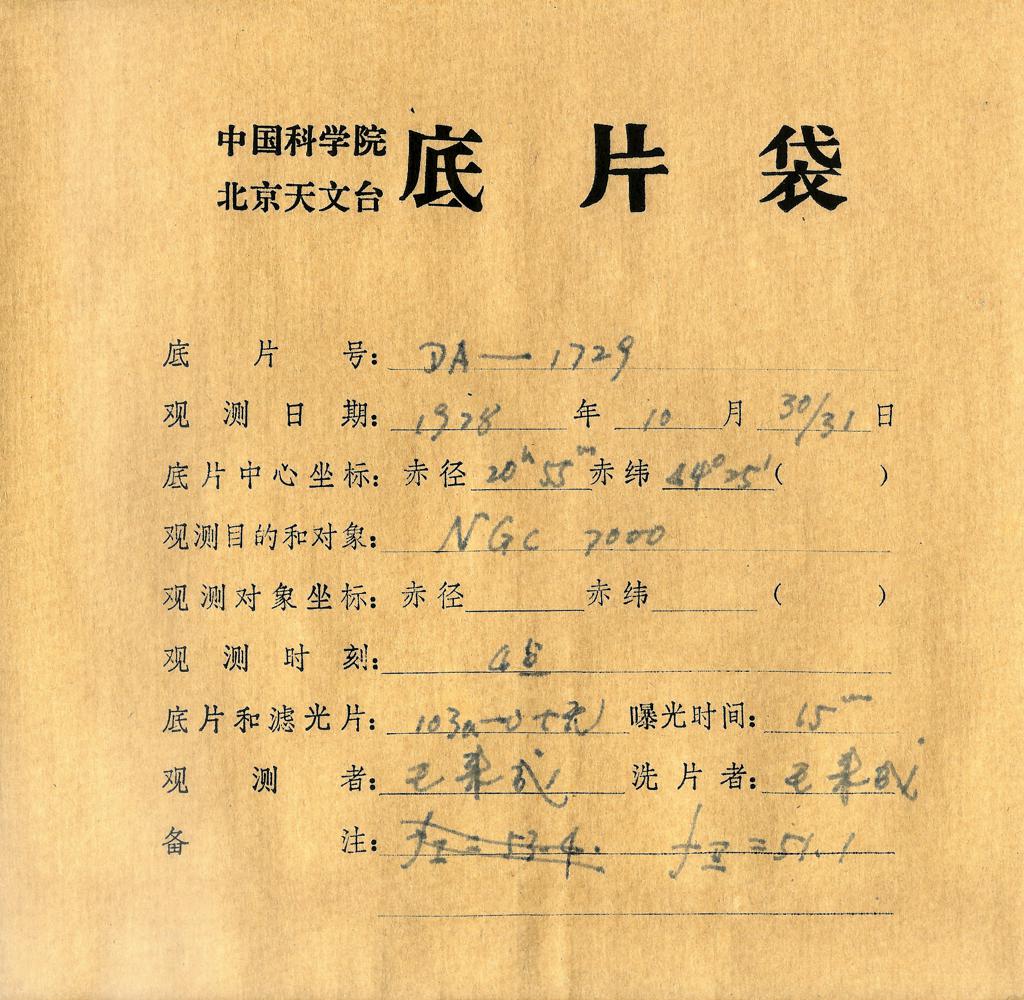 中国科学院
北京天文台 底片袋
底片号: DA—1729
观测日期: 1978年10月30/31日
底片中心坐标: 赤径 20h 55m 赤纬 44°25′( )
观测目的和对象: NGC 7000
观测对象坐标: 赤径 赤纬 ( )
观测时刻:
底片和滤光片: 103a-O+无 曝光时间: 15m
观测者: 王来成 洗片者: 王来成
备注: fⅠ=53.4. fⅡ=51.1